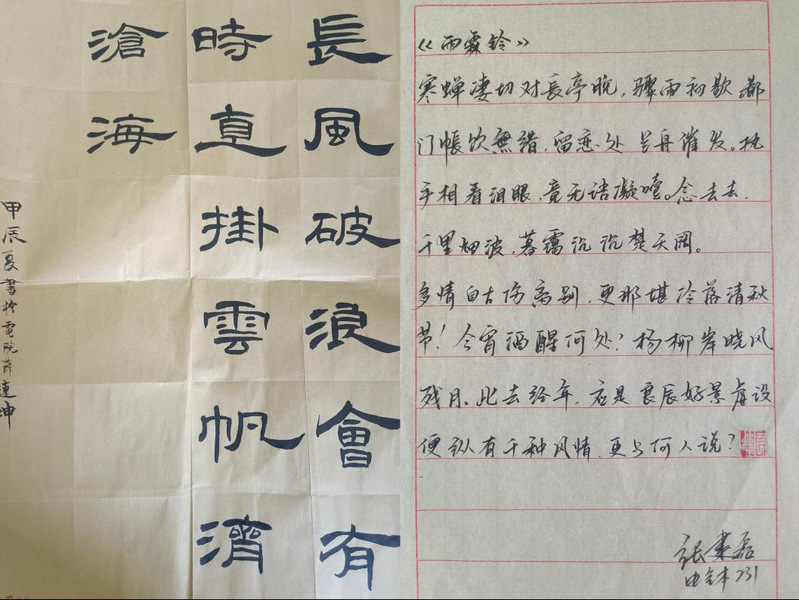 長風破浪會有
時直掛雲帆濟
滄海
甲辰夏書於電院薛連坤
《雨霖铃》
寒蝉凄切对長亭晚,骤雨初歇.都
门帐饮無绪,留恋处 兰舟催发。执
手相看泪眼,竟无语凝噎。念去去.
千里烟波,暮靄沉沉楚天阔。
多情自古伤离别,更那堪冷落清秋
节!今宵酒醒何处?杨柳岸晓风
残月.此去经年,应是良辰好景虚设
便纵有千种风情,更与何人说?
231